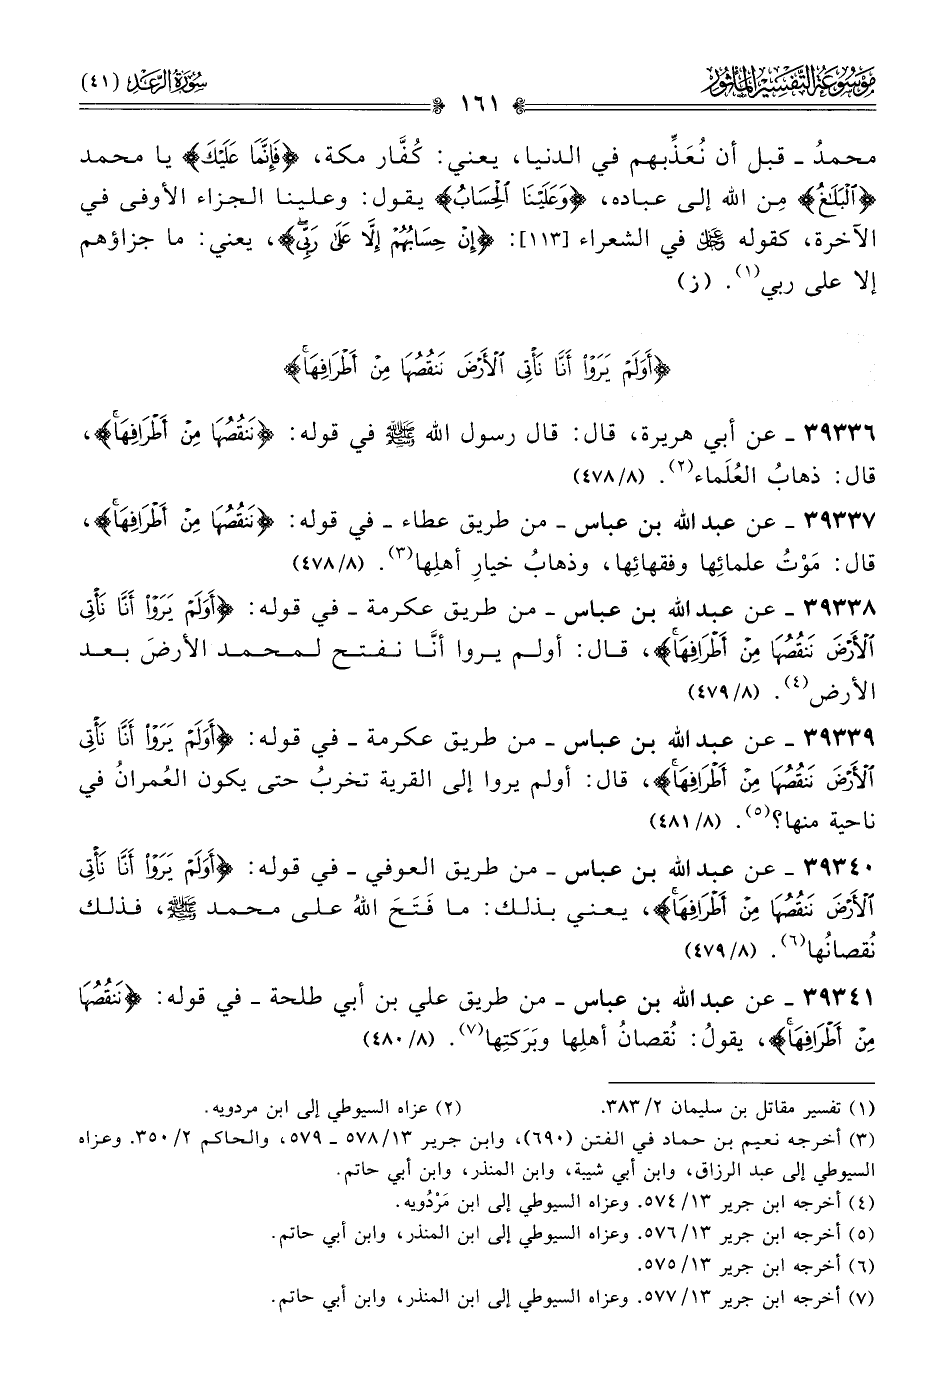 موسوعة التفسير المأثور
سورة الرعد (٤١)
١٦١
محمدُ ـ قبل أن نُعَذِّبهم في الدنيا، يعني: كُفَّار مكة، ﴿فَإِنَّمَا عَلَيْكَ﴾ يا محمد
﴿ٱلْبَلَٰغُ﴾ مِن الله إلى عباده، ﴿وَعَلَيْنَا ٱلْحِسَابُ﴾ يقول: وعلينا الجزاء الأوفى في
الآخرة، كقوله ﷻ في الشعراء [١١٣]: ﴿إِنْ حِسَابُهُمْ إِلَّا عَلَىٰ رَبِّى﴾، يعني: ما جزاؤهم
إلا على ربي(١). (ز)
﴿أَوَلَمْ يَرَوْا۟ أَنَّا نَأْتِى ٱلْأَرْضَ نَنقُصُهَا مِنْ أَطْرَافِهَا ۚ﴾
٣٩٣٣٦ ـ عن أبي هريرة، قال: قال رسول الله ﷺ في قوله: ﴿نَنقُصُهَا مِنْ أَطْرَافِهَا ۚ﴾،
قال: ذهابُ العُلَماء(٢). (٤٧٨/٨)
٣٩٣٣٧ ـ عن عبد الله بن عباس ـ من طريق عطاء ـ في قوله: ﴿نَنقُصُهَا مِنْ أَطْرَافِهَا ۚ﴾،
قال: مَوْتُ علمائِها وفقهائِها، وذهابُ خيارِ أهلِها(٣). (٤٧٨/٨)
٣٩٣٣٨ ـ عن عبد الله بن عباس ـ من طريق عكرمة ـ في قوله: ﴿أَوَلَمْ يَرَوْا۟ أَنَّا نَأْتِى
ٱلْأَرْضَ نَنقُصُهَا مِنْ أَطْرَافِهَا ۚ﴾، قال: أولم يروا أنَّا نفتح لمحمد الأرضَ بعد
الأرض(٤). (٤٧٩/٨)
٣٩٣٣٩ ـ عن عبد الله بن عباس ـ من طريق عكرمة ـ في قوله: ﴿أَوَلَمْ يَرَوْا۟ أَنَّا نَأْتِى
ٱلْأَرْضَ نَنقُصُهَا مِنْ أَطْرَافِهَا ۚ﴾، قال: أولم يروا إلى القرية تخربُ حتى يكون العُمرانُ في
ناحية منها؟(٥). (٤٨١/٨)
٣٩٣٤٠ ـ عن عبد الله بن عباس ـ من طريق العوفي ـ في قوله: ﴿أَوَلَمْ يَرَوْا۟ أَنَّا نَأْتِى
ٱلْأَرْضَ نَنقُصُهَا مِنْ أَطْرَافِهَا ۚ﴾، يعني بذلك: ما فَتَحَ اللهُ على محمد ﷺ، فذلك
نُقصانُها(٦). (٤٧٩/٨)
٣٩٣٤١ ـ عن عبد الله بن عباس ـ من طريق علي بن أبي طلحة ـ في قوله: ﴿نَنقُصُهَا
مِنْ أَطْرَافِهَا ۚ﴾، يقولُ: نُقصانُ أهلِها وبَرَكتِها(٧). (٤٨٠/٨)
(١) تفسير مقاتل بن سليمان ٢/ ٣٨٣.
(٢) عزاه السيوطي إلى ابن مردويه.
(٣) أخرجه نعيم بن حماد في الفتن (٦٩٠)، وابن جرير ١٣/ ٥٧٨ ـ ٥٧٩، والحاكم ٢/ ٣٥٠. وعزاه
السيوطي إلى عبد الرزاق، وابن أبي شيبة، وابن المنذر، وابن أبي حاتم.
(٤) أخرجه ابن جرير ١٣/ ٥٧٤. وعزاه السيوطي إلى ابن مَرْدُويه.
(٥) أخرجه ابن جرير ١٣/ ٥٧٦. وعزاه السيوطي إلى ابن المنذر، وابن أبي حاتم.
(٦) أخرجه ابن جرير ١٣/ ٥٧٥.
(٧) أخرجه ابن جرير ١٣/ ٥٧٧. وعزاه السيوطي إلى ابن المنذر، وابن أبي حاتم.